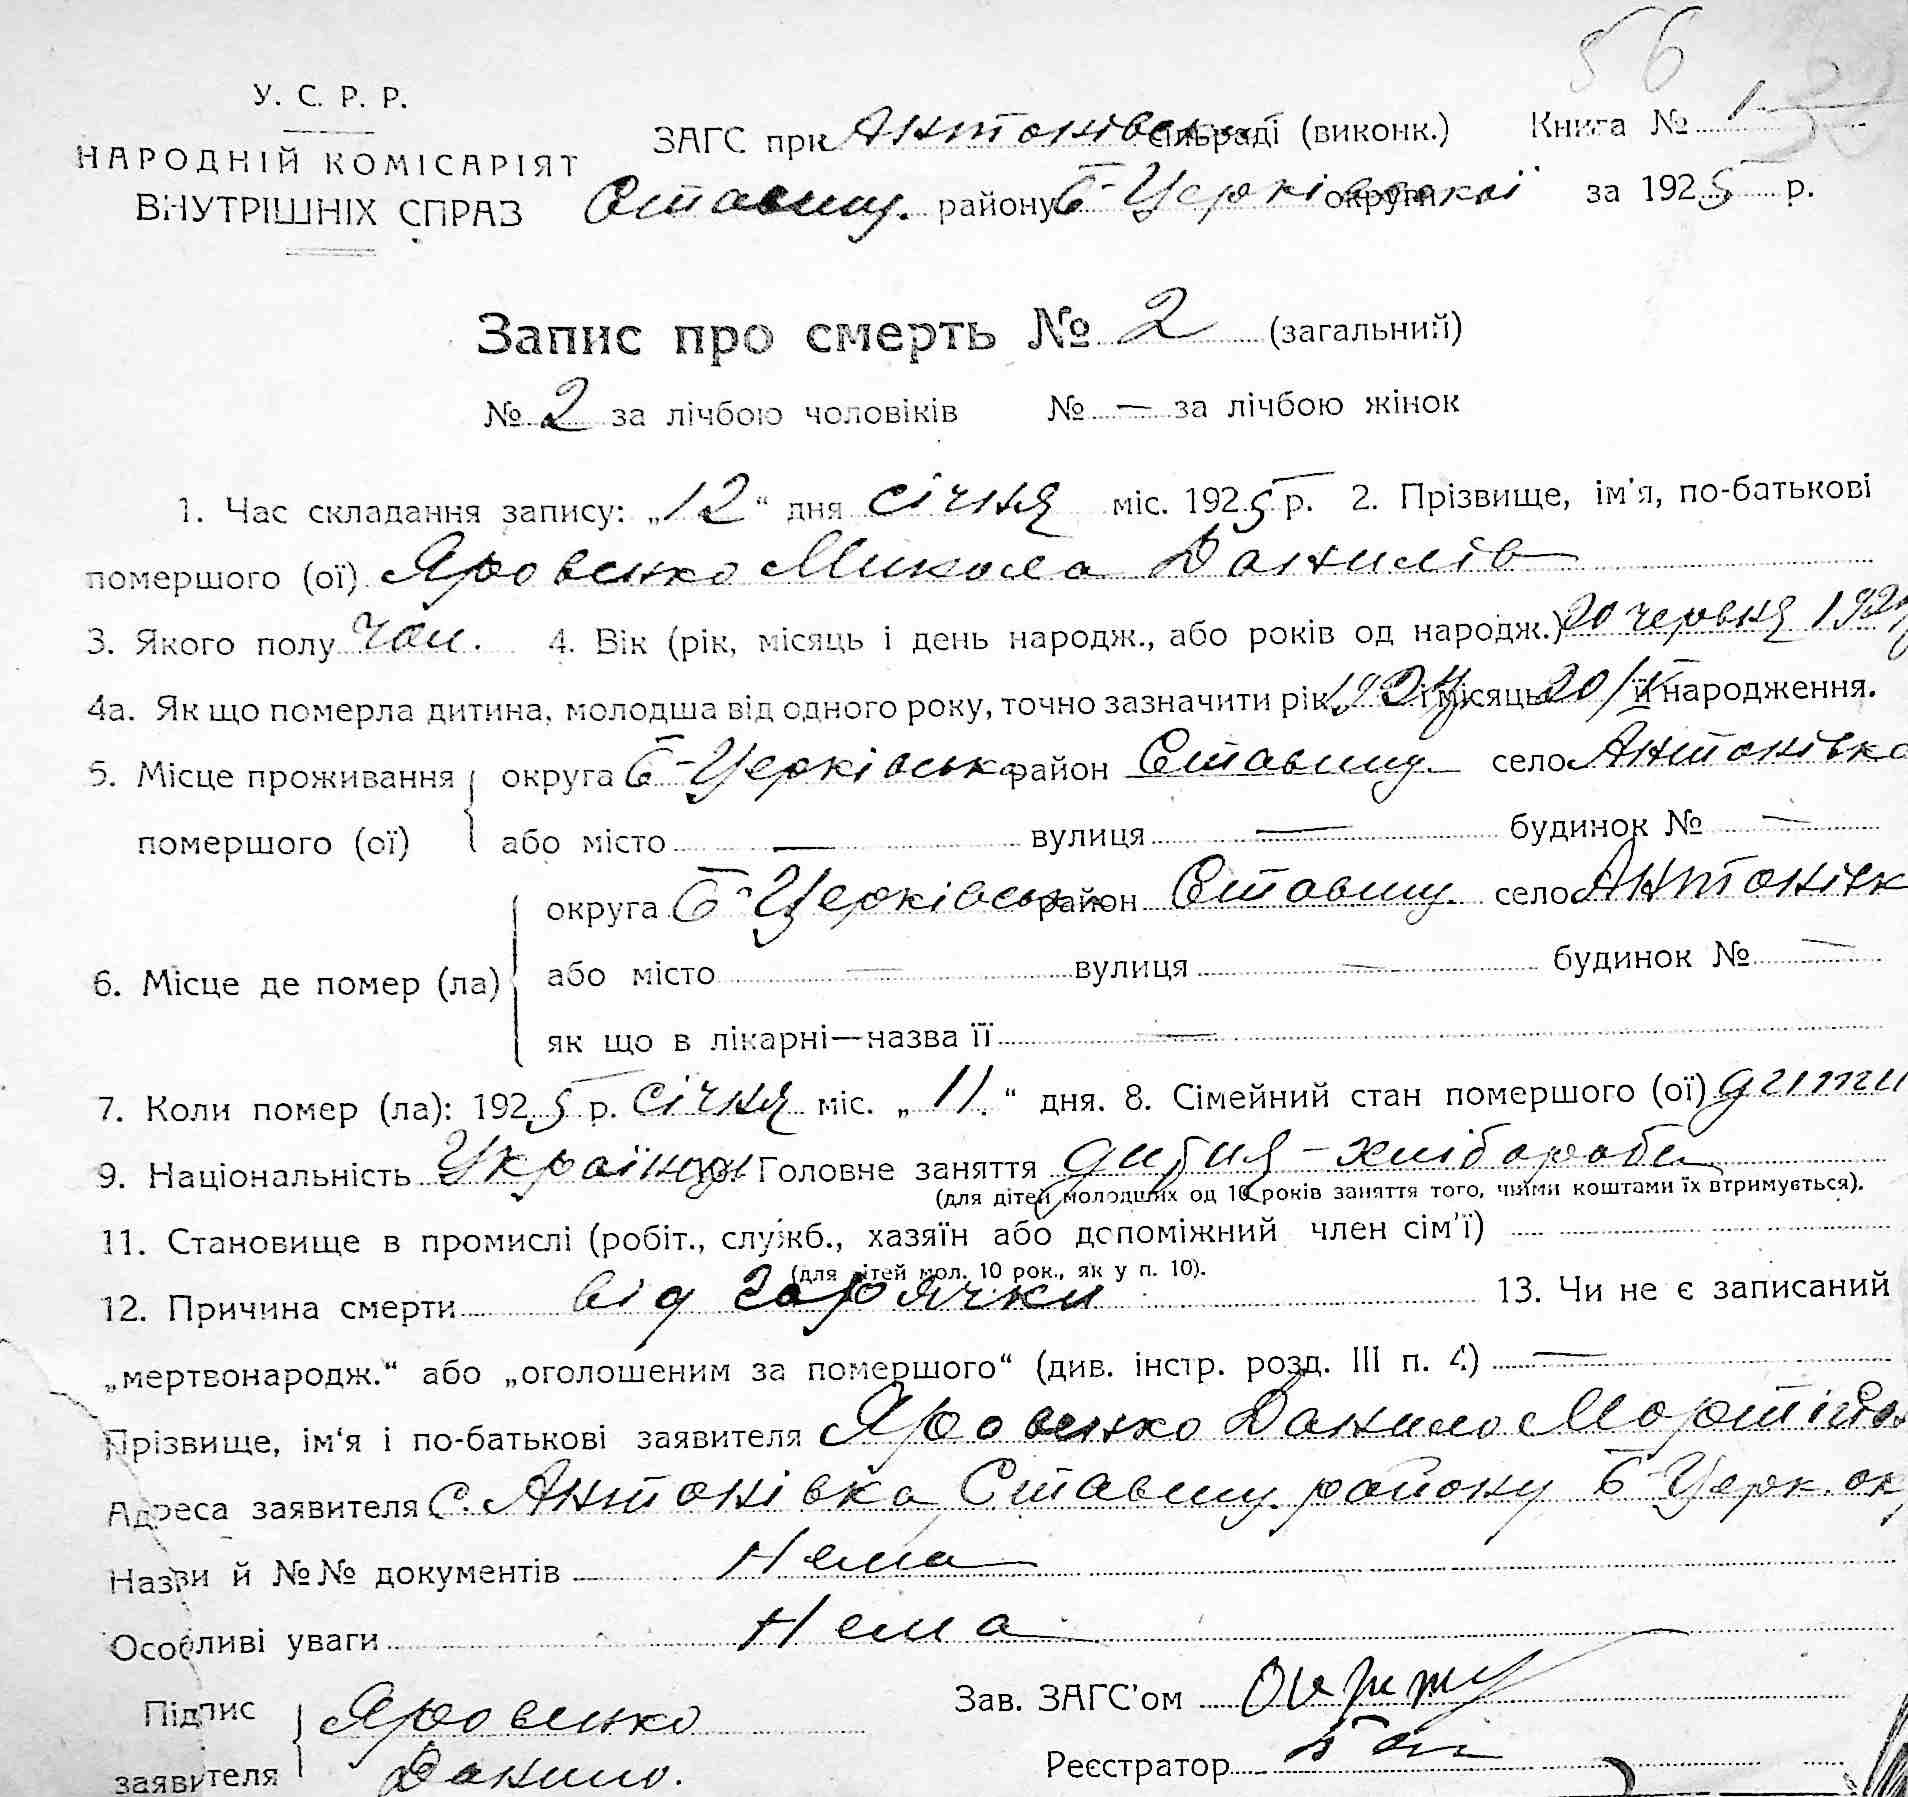 56
У. С. Р. Р.
НАРОДНІЙ КОМІСАРІЯТ
ВНУТРІШНІХ СПРАВ
ЗАГС при Антонівск сільраді (виконк.) Книга № 1
Ставищ. району Б-Церківської округи за 1925 р.
Запис про смерть № 2 (загальний)
№ 2 за лічбою чоловіків № — за лічбою жінок
1. Час складання запису: „12“ дня січня міс. 1925 р. 2. Прізвище, ім'я, по-батькові
помершого (ої) Яровенко Микола Данилів
3. Якого полу чол. 4. Вік (рік, місяць і день народж., або років од народж.) 20 червня 1924
4а. Як що померла дитина, молодша від одного року, точно зазначити рік 1924 і місяць 20/ її народження.
5. Місце проживання помершого (ої) округа Б-Церківська район Ставищ. село Антонівка
або місто — вулиця — будинок № —
6. Місце де помер (ла) округа Б-Церківськ район Ставищ. село Антонівк
або місто — вулиця — будинок № —
як що в лікарні—назва її —
7. Коли помер (ла): 1925 р. січня міс. „11.“ дня. 8. Сімейний стан помершого (ої) дити
9. Національність Українец Головне заняття дития - хлібороби
(для дітей молодших од 10 років заняття того, чиїми коштами їх втримується).
11. Становище в промислі (робіт., службб., хазяїн або допоміжний член сім'ї)
(для дітей мол. 10 рок., як у п. 10).
12. Причина смерти від гарячки 13. Чи не є записаний
„мертвонародж.“ або „оголошеним за помершого“ (див. інстр. розд. III п. 4) —
Прізвище, ім'я і по-батькові заявителя Яровенко Данило
Адреса заявителя С. Антонівка Ставищ. району Б-Церк. ок
Назви й №№ документів Нема
Особливі уваги Нема
Підпис заявителя Яровенко Данило.
Зав. ЗАГС'ом
Реєстратор